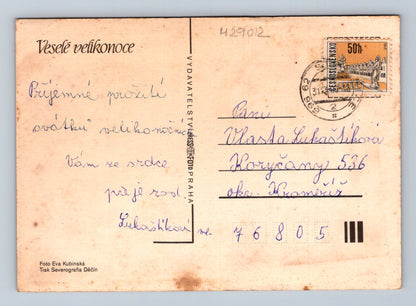 H29012
Veselé velikonoce
50h
ČESKOSLOVENSKO
696 62
VYDAVATELSTVÍ
PRAHA
Příjemné prožití
svátků velikonočních
Vám ze srdce
přeje rod.
Lukaštíkova
Paní
Vlasta Lukaštíková
Koryčany 536
okr. Kroměříž
76805
Foto Eva Kubinská
Tisk Severografia Děčín